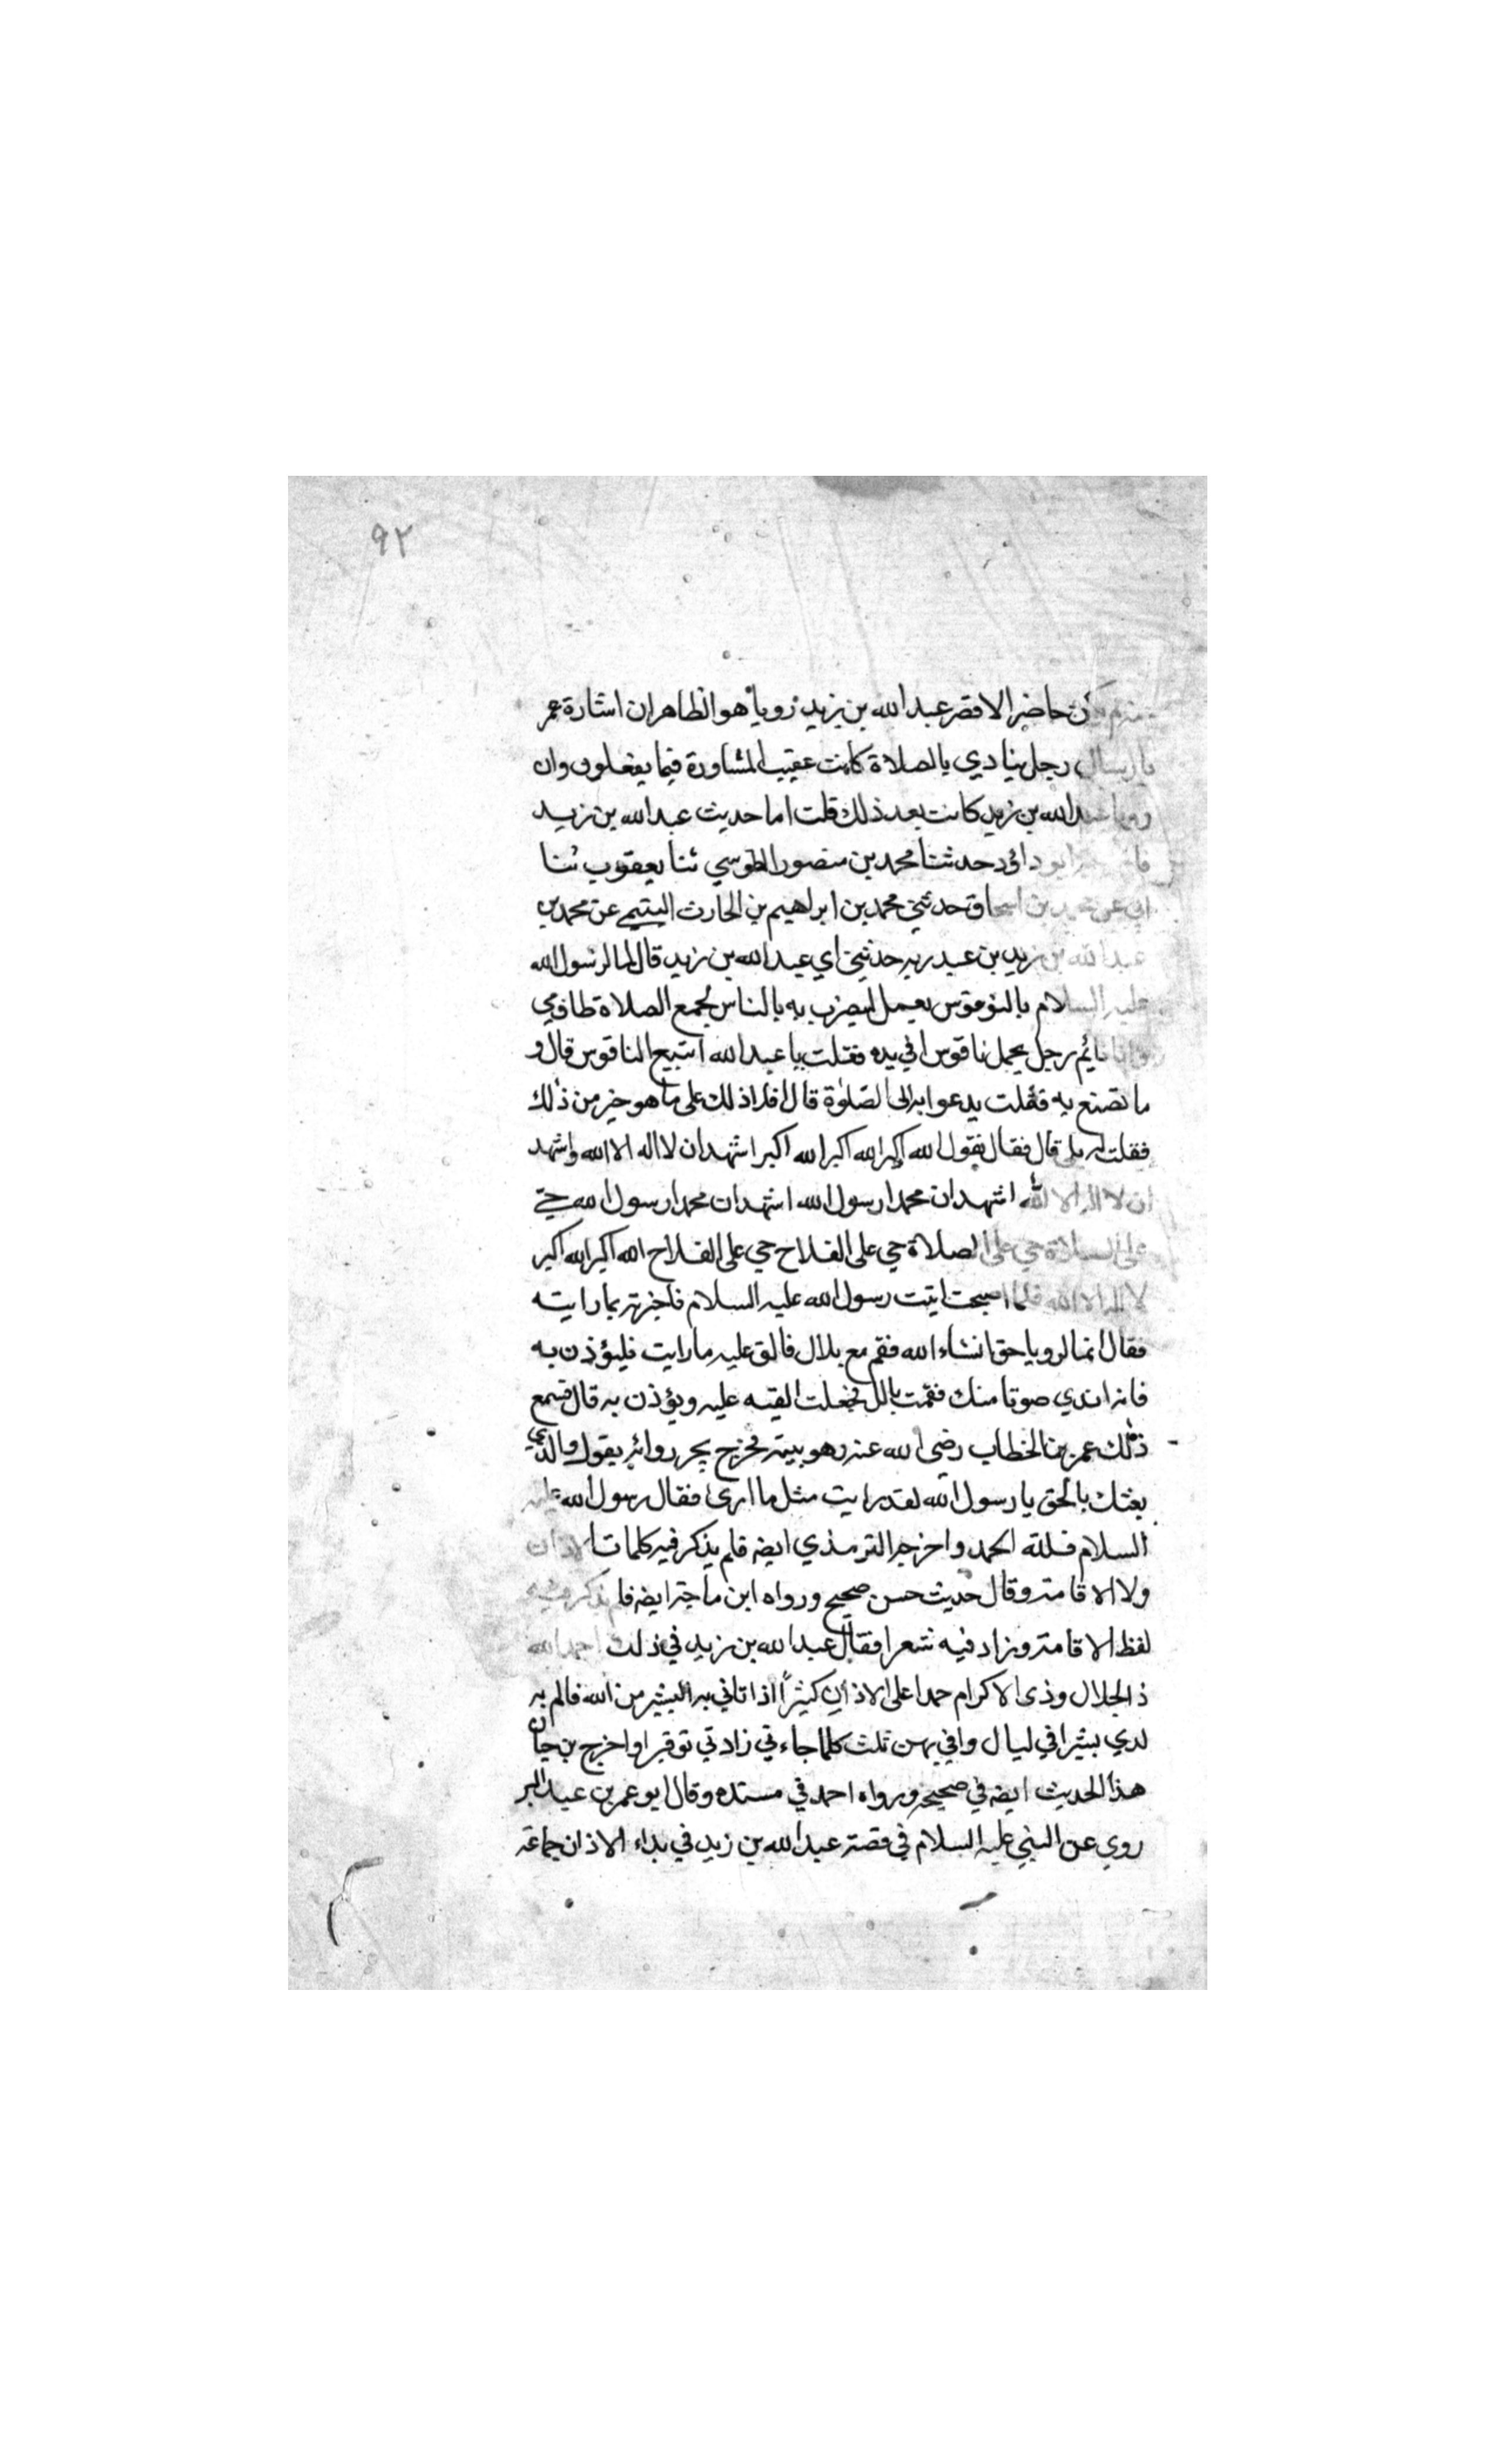 ٩٢
منهم كان حاضرا لا قصر عبد الله بن يزيد رويا هو الظاهر ان اشارة عمر
بارسال رجل ينادي بالصلاة كانت عقيب المشاورة فيما يفعلون وان
رويا عبد الله بن زيد كانت بعد ذلك قلت اما حديث عبد الله بن زيد
ابو داؤد حدثنا محمد بن منصور الطوسي ثنا يعقوب ثنا
ابي عن محمد بن اسحاق حدثني محمد بن ابراهيم بن الحارث التيمي عن محمد بن
عبد الله بن زيد بن عبد ربه حدثني ابي عبد الله بن زيد قال لما امر رسول الله
عليه السلام بالنوقوس يعمل ليضرب به بالناس لجمع الصلاة طاف بي
وانا نائم رجل يحمل ناقوسا في يده فقلت يا عبد الله اتبيع الناقوس قال و
ما تصنع به فقلت يدعوا به الى الصلوة قال افلا اذلك على ما هو خير من ذلك
فقلت له بلى قال فقال تقول الله اكبر الله اكبر الله اكبر اشهد ان لا اله الا الله واشهد
ان لا اله الا الله اشهد ان محمدا رسول الله اشهد ان محمدا رسول الله حي
على الصلاة حي على الصلاة حي على الفلاح حي على الفلاح الله اكبر الله اكبر
لا اله الا الله فلما اصبحت اتيت رسول الله عليه السلام فاخبرته بما رايته
فقال انها لرويا حق انشاء الله فقم مع بلال فالق عليه ما رايت فليؤذن به
فانه اندي صوتا منك فقمت بالل فجعلت القيه عليه ويؤذن به قال فسمع
ذلك عمر بن الخطاب رضى الله عنه وهو بيته فخرج يجر روائه يقول والذي
بعثك بالحق يا رسول الله لقد رايت مثل ما ارى فقال رسول الله عليه
السلام فلله الحمد واخرجه الترمذي ايضه فلم يذكر فيه كلمات الاذان
ولا الاقامة وقال حديث حسن صحيح ورواه ابن ماجة ايضه فلم يذكر فيه
لفظ الاقامة وزاد فيه شعرا فقال عبد الله بن زيد في ذلك احمد الله
ذ الجلال وذى الاكرام حمدا على الاذان كثيرا اذا تاني به البشير من الله فالم به
لدي بشيرا في ليال وافي بهن ثلث كلما جاءني زادني توقيرا واخرج بن حبان
هذا الحديث ايضه في صحيحه ورواه احمد في مسنده وقال ابو عمر بن عبد البر
روي عن النبي عليه السلام في قصة عبد الله بن زيد في بداء الاذان جماعة